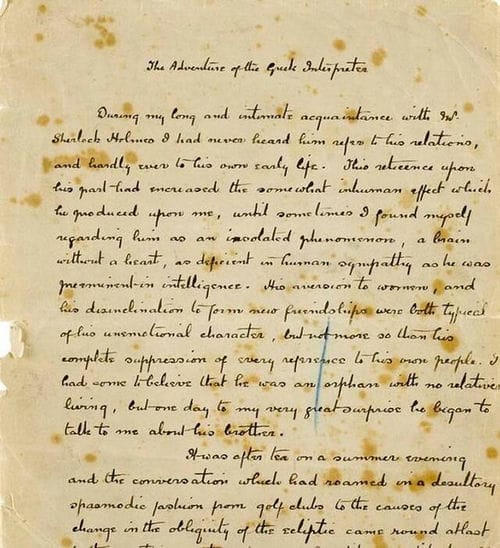 The Adventure of the Greek Interpreter
During my long and intimate acquaintance with Mr.
Sherlock Holmes I had never heard him refer to his relations,
and hardly ever to his own early life. This reticence upon
his part had increased the somewhat inhuman effect which
he produced upon me, until sometimes I found myself
regarding him as an isolated phenomenon, a brain
without a heart, as deficient in human sympathy as he was
preeminent in intelligence. His aversion to women, and
his disinclination to form new friendships were both typical
of his unemotional character, but not more so than his
complete suppression of every reference to his own people. I
had come to believe that he was an orphan with no relatives
living, but one day to my very great surprise he began to
talk to me about his brother.
It was after tea on a summer evening
and the conversation which had roamed in a desultory
spasmodic fashion from golf clubs to the causes of the
change in the obliquity of the ecliptic came round at last